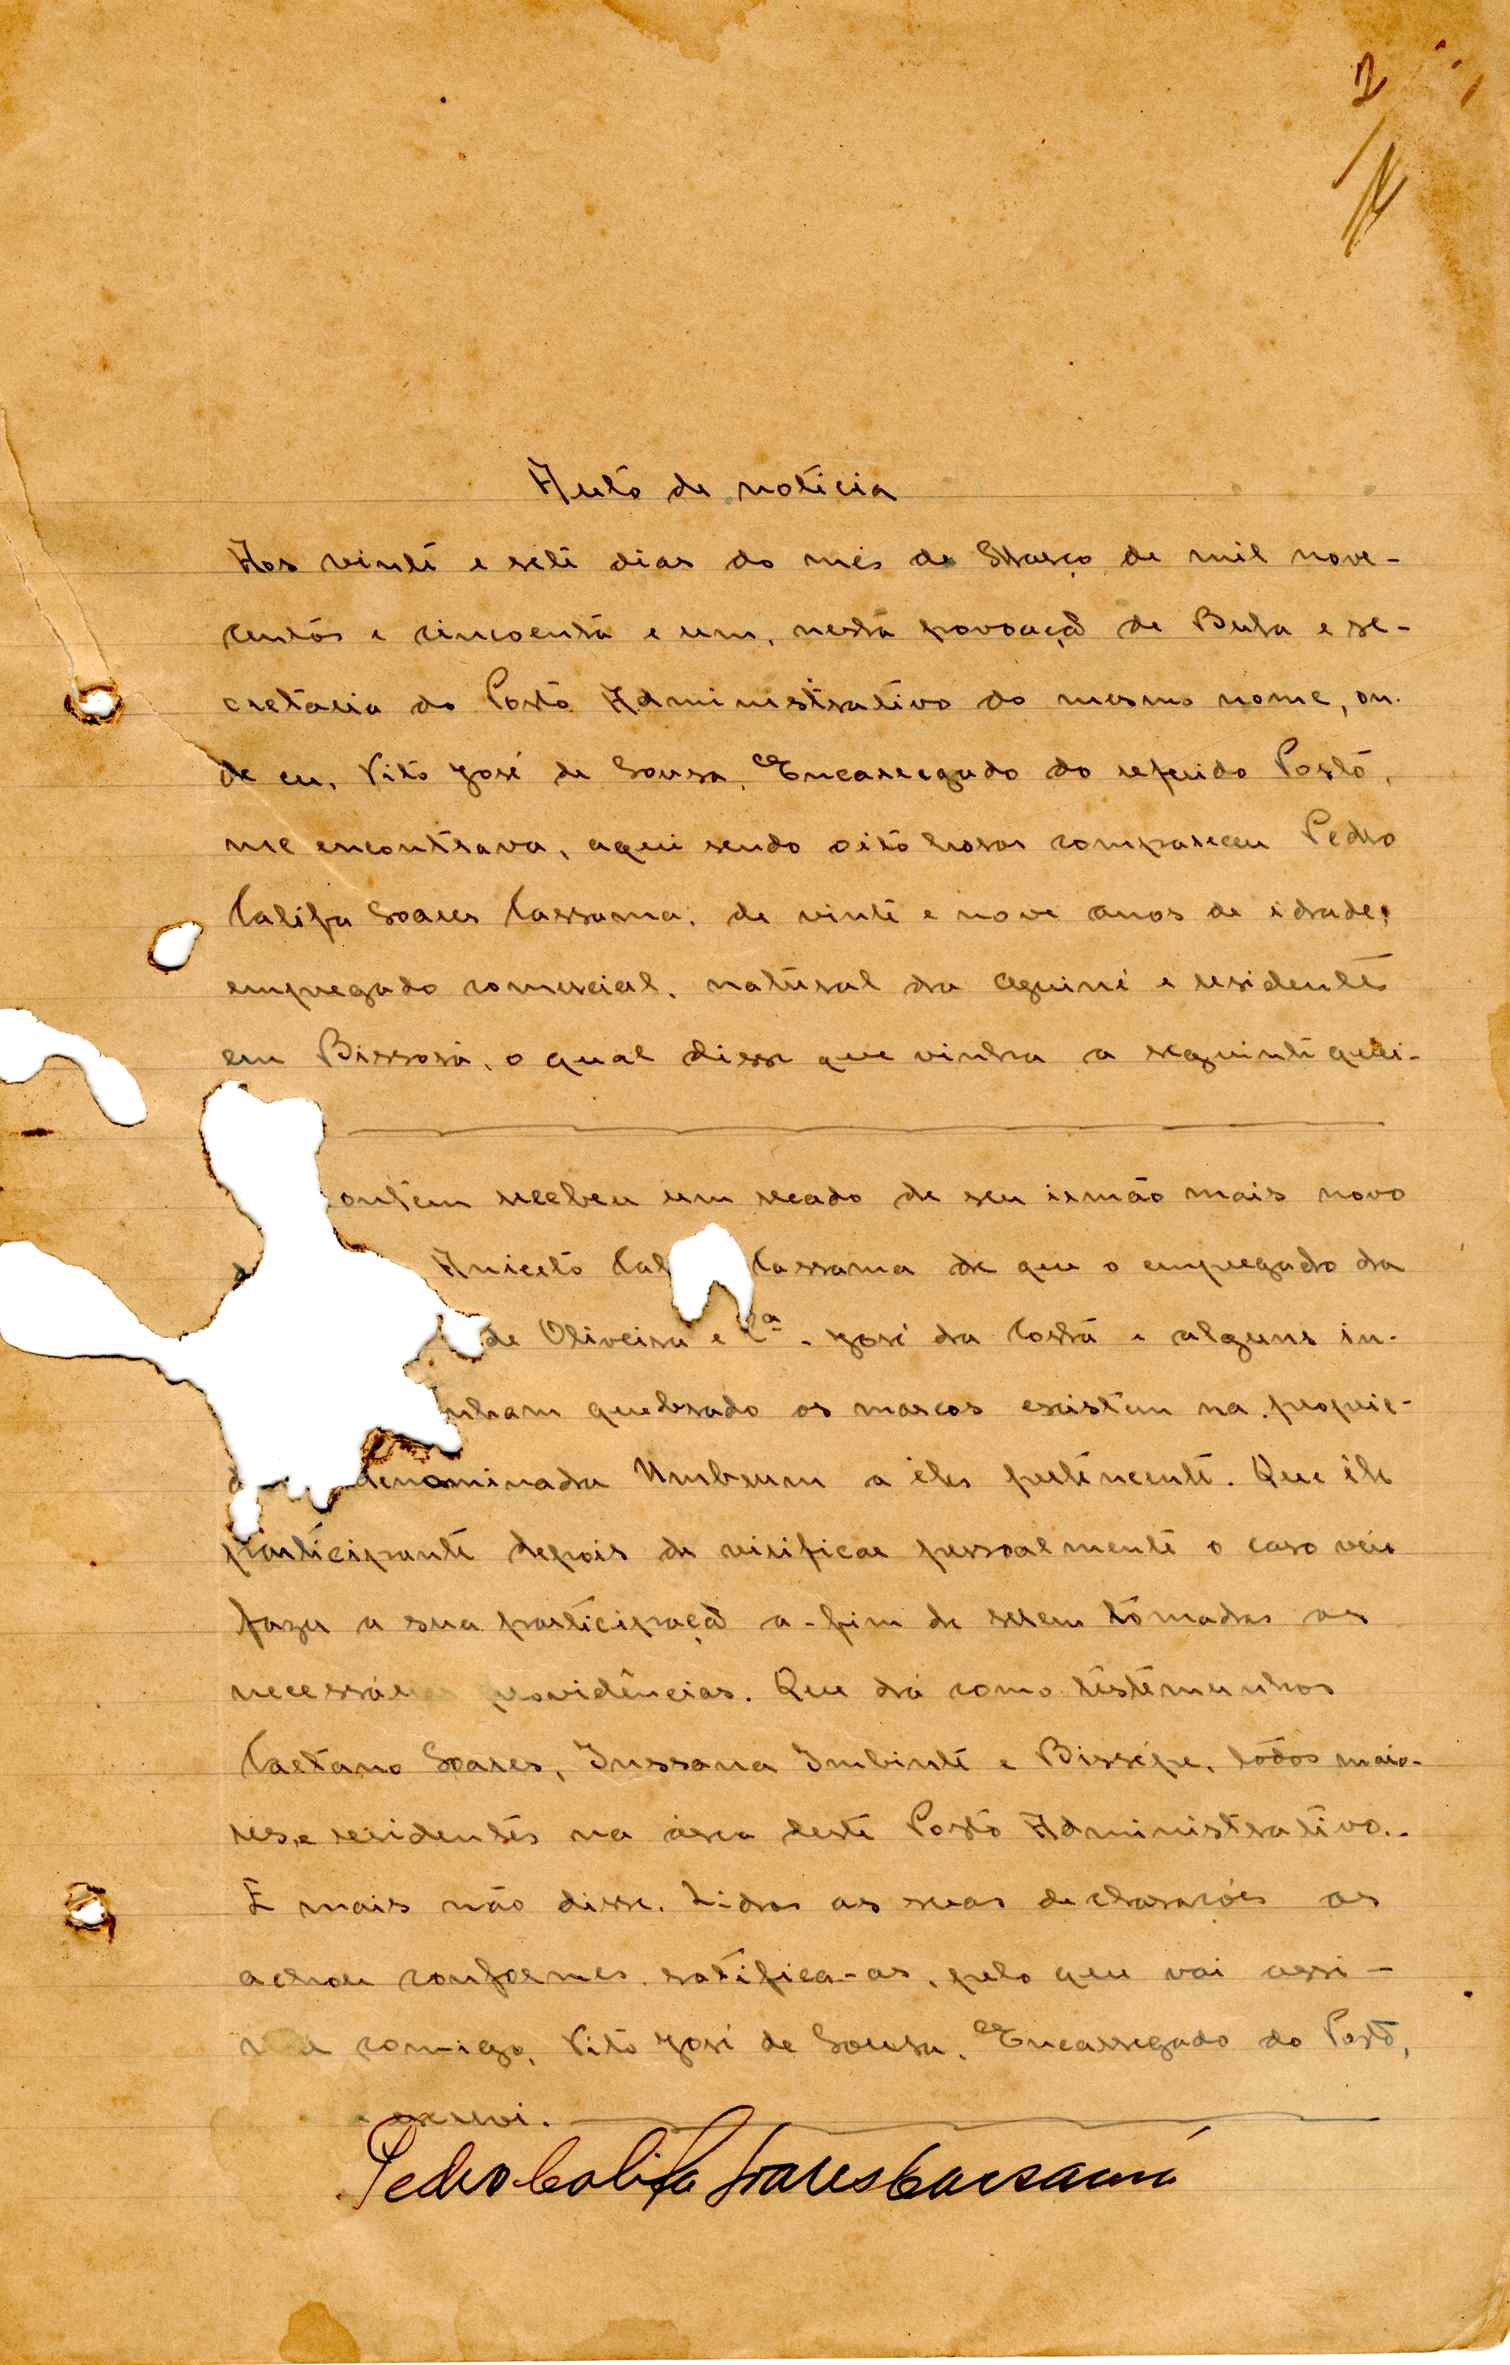 2
Auto de notícia
Aos vinte e sete dias do mês de Março de mil nove-
centos e cincoenta e um, nesta povoaçã de Bula e se-
cretaria do Posto Administrativo do mesmo nome, on-
de eu, Vito José de Sousa, Encarregado do referido Posto,
me encontrava, aqui sendo oito horas compareceu Pedro
Califa Soares Cassama, de vinte e nove anos de idade,
empregado comercial, natural da Guiné e residente
em Bissorã, o qual disse que vinha a seguinte quei-
ontem recebeu um recado de seu irmão mais novo
Aniceto Cal Cassama de que o empregado da
de Oliveira e Cª. José da Costa e alguns in-
nham quebrado os marcos existem na proprie-
d denominada Umbrum a êles pertencente. Que êle
participante depois de verificar pessoalmente o caso veio
fazer a sua participaçã a-fim de serem tomadas as
necessárias providências. Que dá como testemunhas
Caetano Soares, Jussana Imbinte e Bissépe, todos maio-
res e residentes na área deste Posto Administrativo.-
E mais não disse. Lidas as suas declarações as
achou conformes, ratifica-as, pelo que vai assi-
nar comigo, Vito José de Sousa, Encarregado do Posto,
escrevi.
Pedro Califa Soares Cassamá